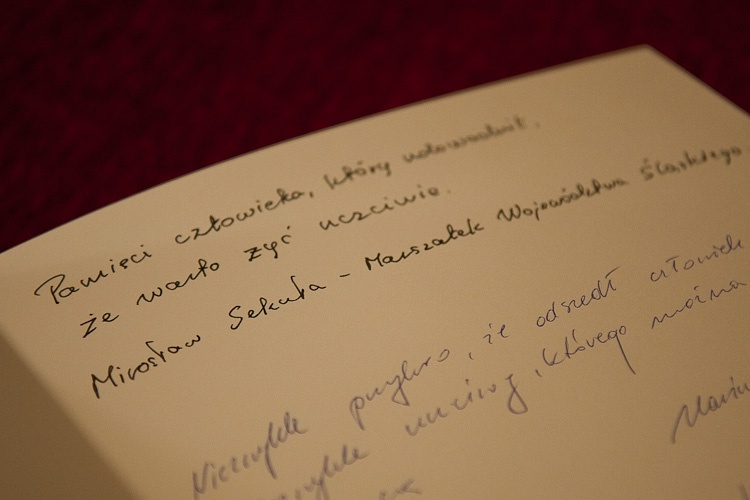 Pamięci człowieka, który udowodnił,
że warto żyć uczciwie.
Mirosław Sekuła - Marszałek Województwa Śląskiego
Niezwykle przykro, że odszedł człowiek
niezwykle uczciwy, którego można